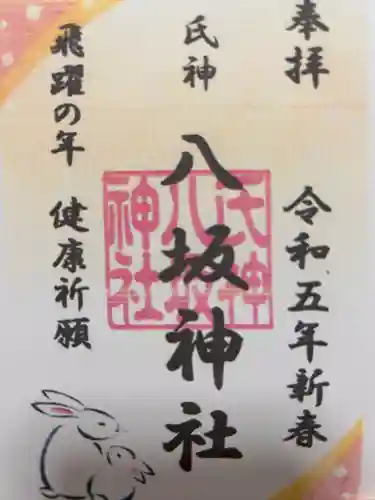 奉拝
令和五年新春
氏神
八坂神社
氏神
八坂
神社
飛躍の年 健康祈願